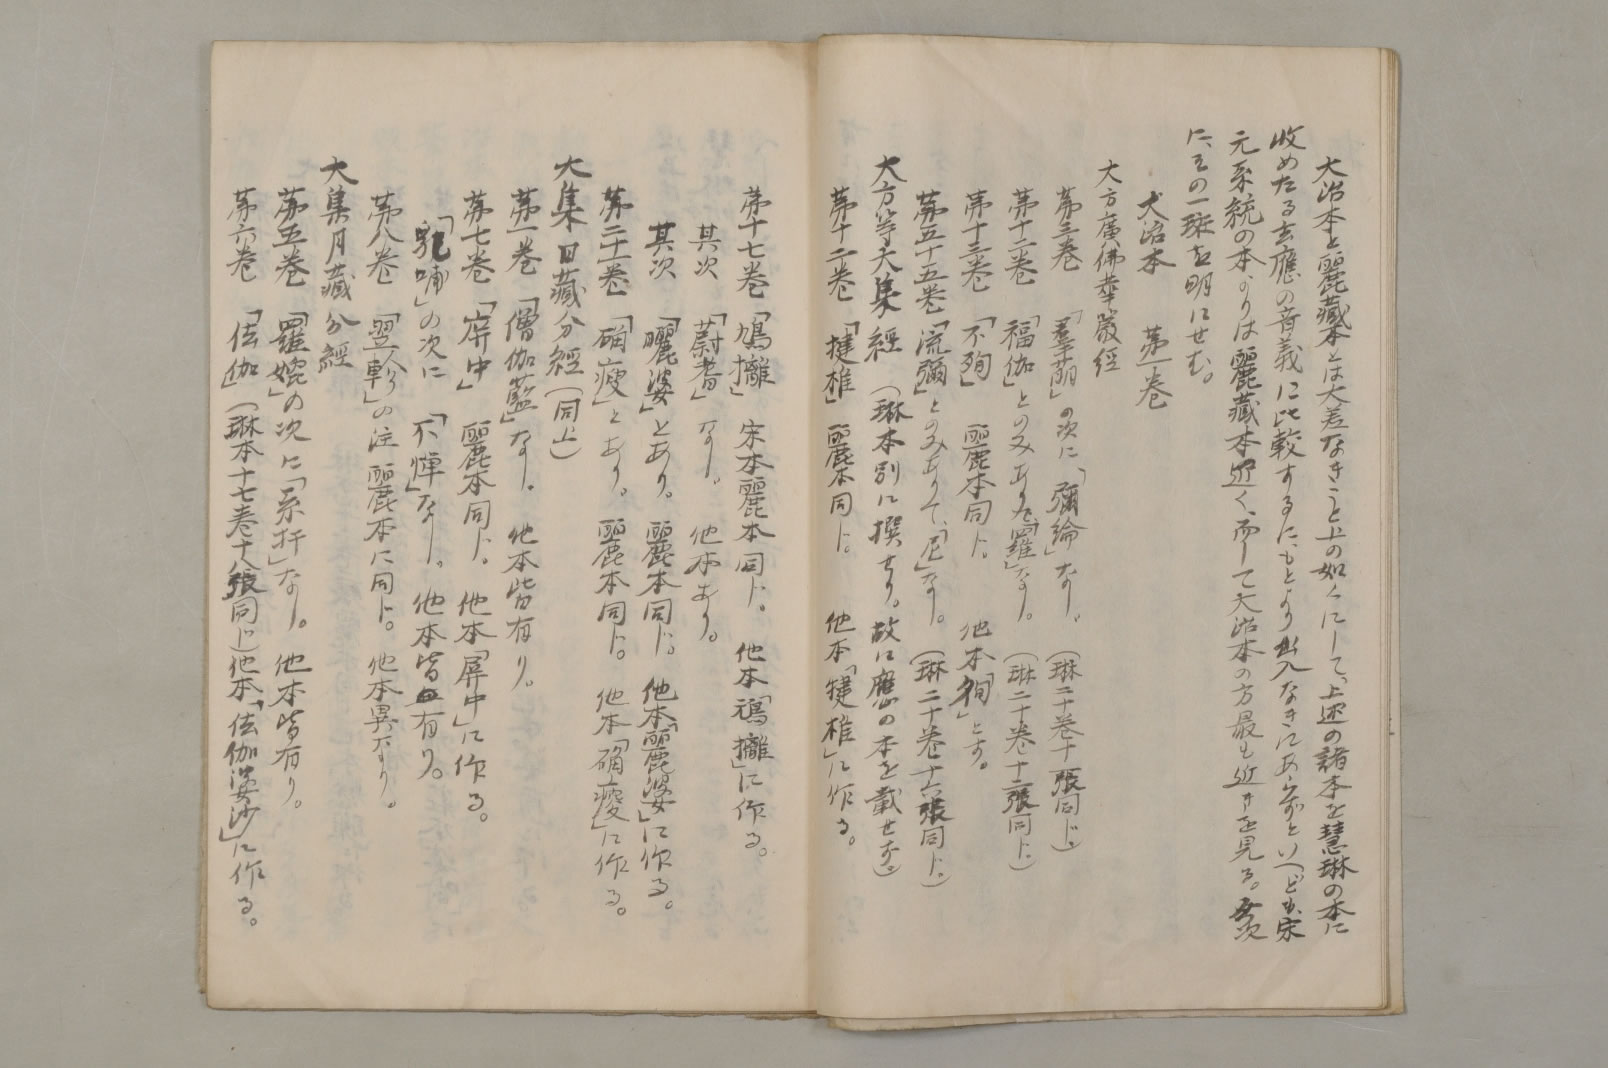 大治本と麗藏本とは大差なきこと上の如くにして、上述の諸本を慧琳の本に
收めたる玄應の音義に比較するに、もとより出入なきにあらずといへども、宋
元系統の本よりは麗藏本近く、而して大治本の方最も近きを見る。次
に、その一斑を明にせむ。
大治本 第一巻
大方廣佛華嚴經
第三巻 「羣萠」の次に「彌綸」なし。(琳二十巻十張同じ。)
第十二巻 「福伽」とのみありて「羅」なし。(琳二十巻十二張同じ)
第十三巻 「不殉」 麗本同じ。 他本「徇」とす。
第五十五巻 「流彌」とのみありて、「尼」なし。(琳二十巻十六張同じ。)
大方等大集經 (琳本別に撰せり。故に應の本を載せず。)
第十二巻 「揵椎」 麗本同じ。 他本「犍椎」に作る。
第十七巻 「鳩攡」 宋本麗本同じ。 他本「鴆攡」に作る。
其次 「蔚耆」なし。 他本あり。
其次 「曬婆」とあり。 麗本同じ。 他本「麗婆」に作る。
第二十二巻 「确瘦」とあり。 麗本同じ。 他本「确瘦」に作る。
大集日藏分經(同上)
第一巻 「僧伽藍」なし。 他本皆有り。
第七巻 「庰中」 麗本同じ。 他本「屏中」に作る。
「䭾哺」の次に 「不憚」なし。 他本皆有り。
第八巻 「翌軫」の注 麗本に同じ。 他本異なり。
大集月藏分經
第五巻 「羅婫」の次に「系扞」なし。 他本皆有り。
第六巻 「佉伽」(琳本十七巻十八張同じ)他本「佉伽婆沙」に作る。